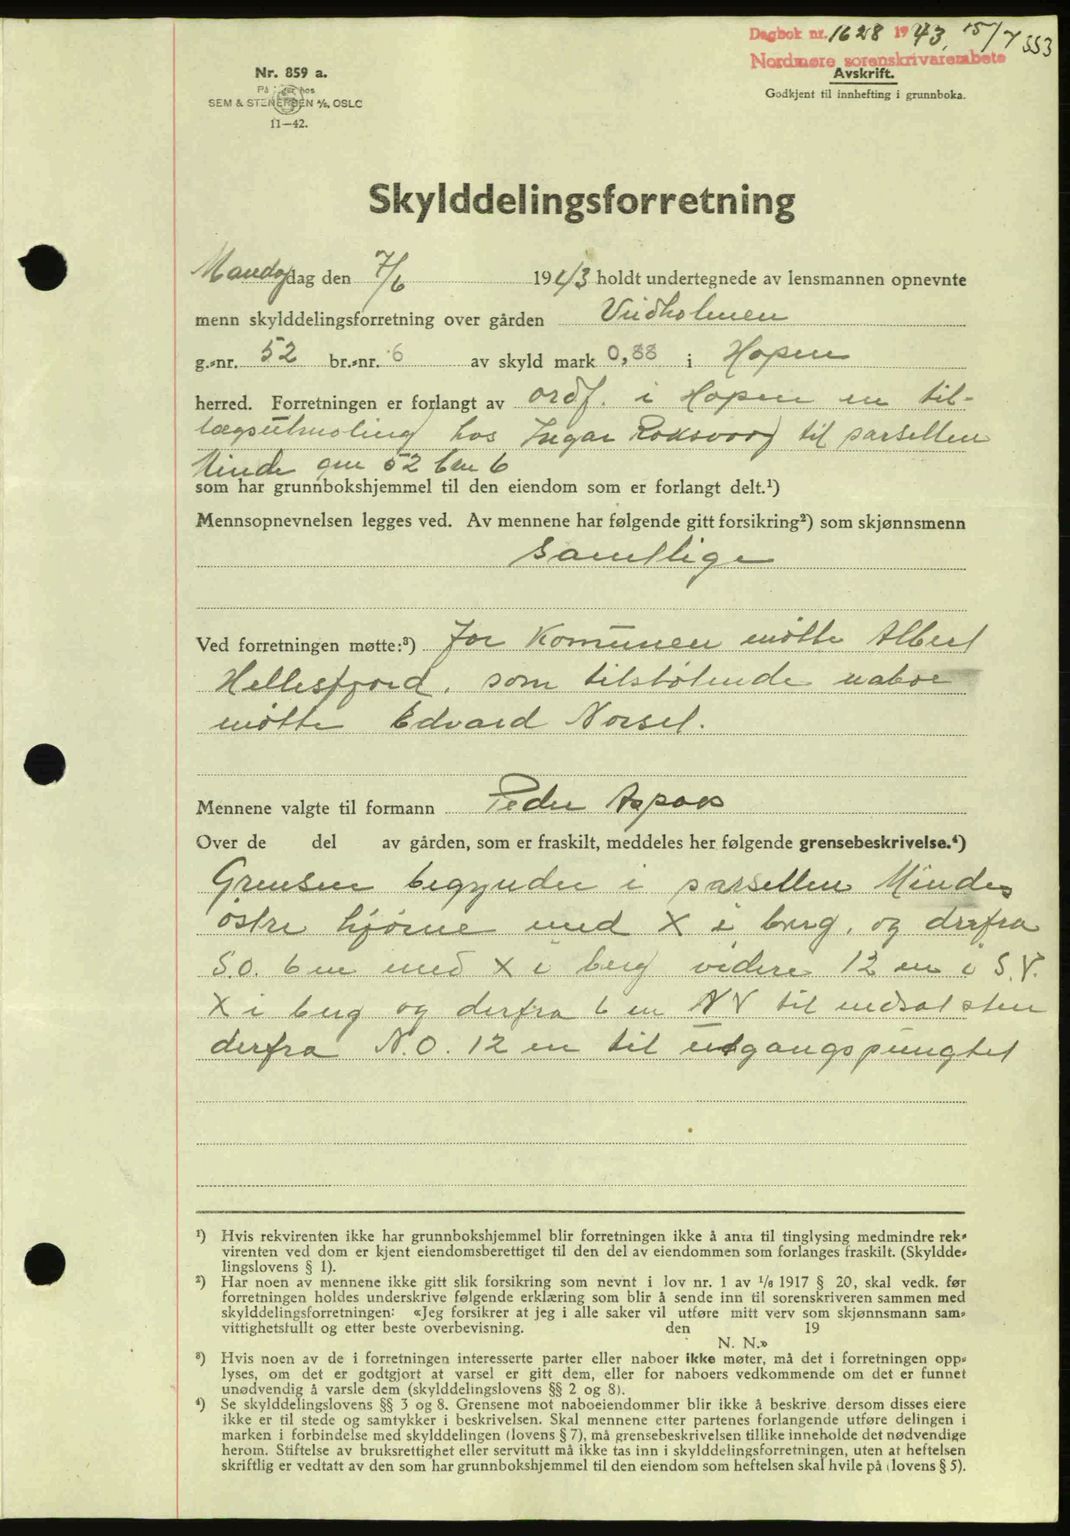 Dagbok nr. 1628 1943, 15/7 553
Nordmøre sorenskriverembete
Nr. 859 a.
Avskrift.
På hos
SEM & STENERSEN A/S, OSLO
Godkjent til innhefting i grunnboka.
11—42.
Skylddelingsforretning
Mandag dag den 7/6 1943 holdt undertegnede av lensmannen opnevnte
menn skylddelingsforretning over gården
g.-nr. 52 br.-nr. 6 av skyld mark 0,88 i Hopen
herred. Forretningen er forlangt av ordf. i Hopen en til-
lægsutmoling hos Ingar Roksvaag til parsellen
Minde gnr 52 bnr 6
som har grunnbokshjemmel til den eiendom som er forlangt delt.¹)
Mennsopnevnelsen legges ved. Av mennene har følgende gitt forsikring²) som skjønnsmenn
samtlige
Ved forretningen møtte:³) for Komunen møtte Albert
Hellesfjord, som tilstøtende naboe
møtte Edvard Norset.
Mennene valgte til formann Peder
Over de del av gården, som er fraskilt, meddeles her følgende grensebeskrivelse.⁴)
Grensen begynder i parsellen Mindes
østre hjørne med X i berg, og derfra
S.O. 6 m med X i berg videre 12 m i S.V.
X i berg og derfra 6 m N V til nedsat sten
derfra N.O. 12 m til utgangspungtet
¹) Hvis rekvirenten ikke har grunnbokshjemmel blir forretningen ikke å anta til tinglysing medmindre rek-
virenten ved dom er kjent eiendomsberettiget til den del av eiendommen som forlanges fraskilt. (Skyldde-
lingslovens § 1).
²) Har noen av mennene ikke gitt slik forsikring som nevnt i lov nr. 1 av 1/6 1917 § 20, skal vedk. før
forretningen holdes underskrive følgende erklæring som blir å sende inn til sorenskriveren sammen med
skylddelingsforretningen: «Jeg forsikrer at jeg i alle saker vil utføre mitt verv som skjønnsmann sam-
vittighetsfullt og etter beste overbevisning. den 19
N. N.»
³) Hvis noen av de i forretningen interesserte parter eller naboer ikke møter, må det i forretningen opp-
lyses, om det er godtgjort at varsel er gitt dem, eller for naboers vedkommende om det er funnet
unødvendig å varsle dem (skylddelingslovens §§ 2 og 8).
⁴) Se skylddelingslovens §§ 3 og 8. Grensene mot naboeiendommer blir ikke å beskrive dersom disses eiere
ikke er til stede og samtykker i beskrivelsen. Skal mennene etter partenes forlangende utføre delingen i
marken i forbindelse med skylddelingen (lovens § 7), må grensebeskrivelsen tillike inneholde det nødvendige
herom. Stiftelse av bruksrettighet eller servitutt må ikke tas inn i skylddelingsforretningen, uten at heftelsen
skriftlig er vedtatt av den som har grunnbokshjemmel til den eiendom som heftelsen skal hvile på (lovens § 5).